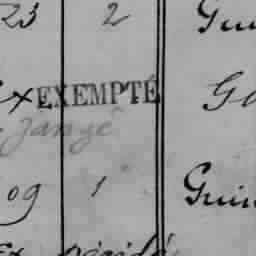 23 2 Gui
x EXEMPTÉ G
Janzé
09 1 Guin